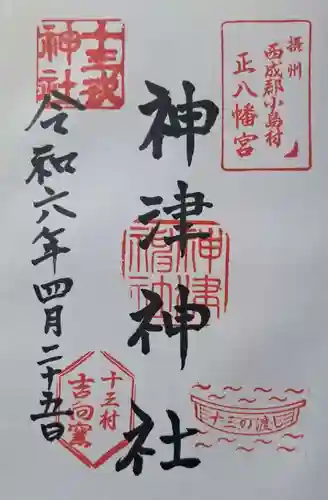 摂州
西成郡小島村
正八幡宮
神津神社
神津神社
十三の渡し
十三戎神社
令和六年四月二十五日
十三村
吉向窯